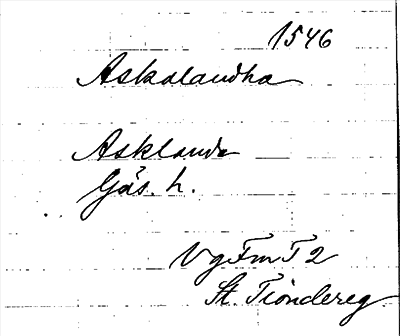 1546
Askalandha
Asklanda
Gäs. h.
Vg Fm T 2
St. Tiondereg